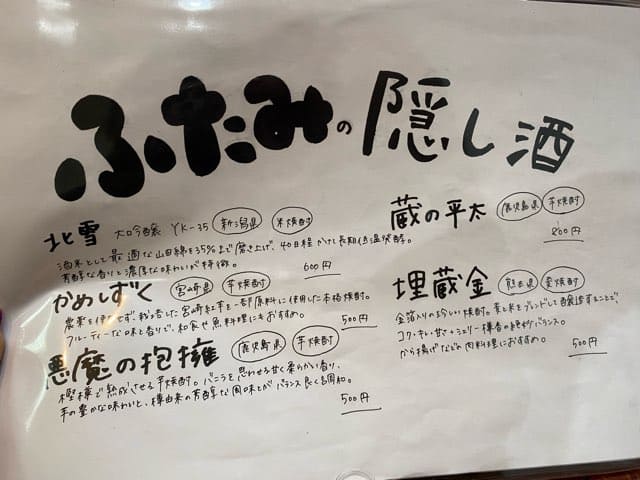 ふたみの隠し酒
北雪 大吟醸 YK-35 新潟県 米焼酎
酒米として最適な山田錦を35%まで磨き上げ、40日程かけて長期低温発酵。
芳醇な香りと濃厚な味わいが特徴。
600円
かめしずく 宮崎県 芋焼酎
農薬を使用せず、栽培した宮崎紅芋を一部原料に使用した本格焼酎。
フルーティーな味と香りで、和食や魚料理にもおすすめ。
500円
悪魔の抱擁 鹿児島県 芋焼酎
樫樽で熟成させる芋焼酎。バニラを思わせる甘く柔らかい香り。
芋の豊かな味わいと、樽由来の芳醇な風味とがバランス良く調和。
500円
蔵の平太 鹿児島県 芋焼酎
800円
埋蔵金 熊本県 麦焼酎
金箔入りの珍しい焼酎。麦と米をブレンドして醸造することで、
コク・キレ・甘さ・シェリー樽香の絶妙バランス。
から揚げなどの肉料理におすすめ。
500円